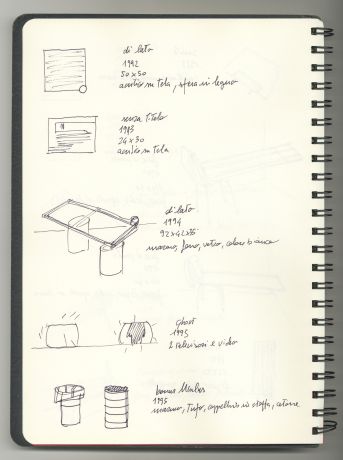 di lato
1992
50x50
acrilico su tela, sfera in legno
senza titolo
1993
24x30
acrilico su tela
di lato
1994
92x42x35
marmo, ferro, vetro, colore bianco
ghost
1995
2 televisori e video
1995
marmo, tufo, cappello in stoffa, catene